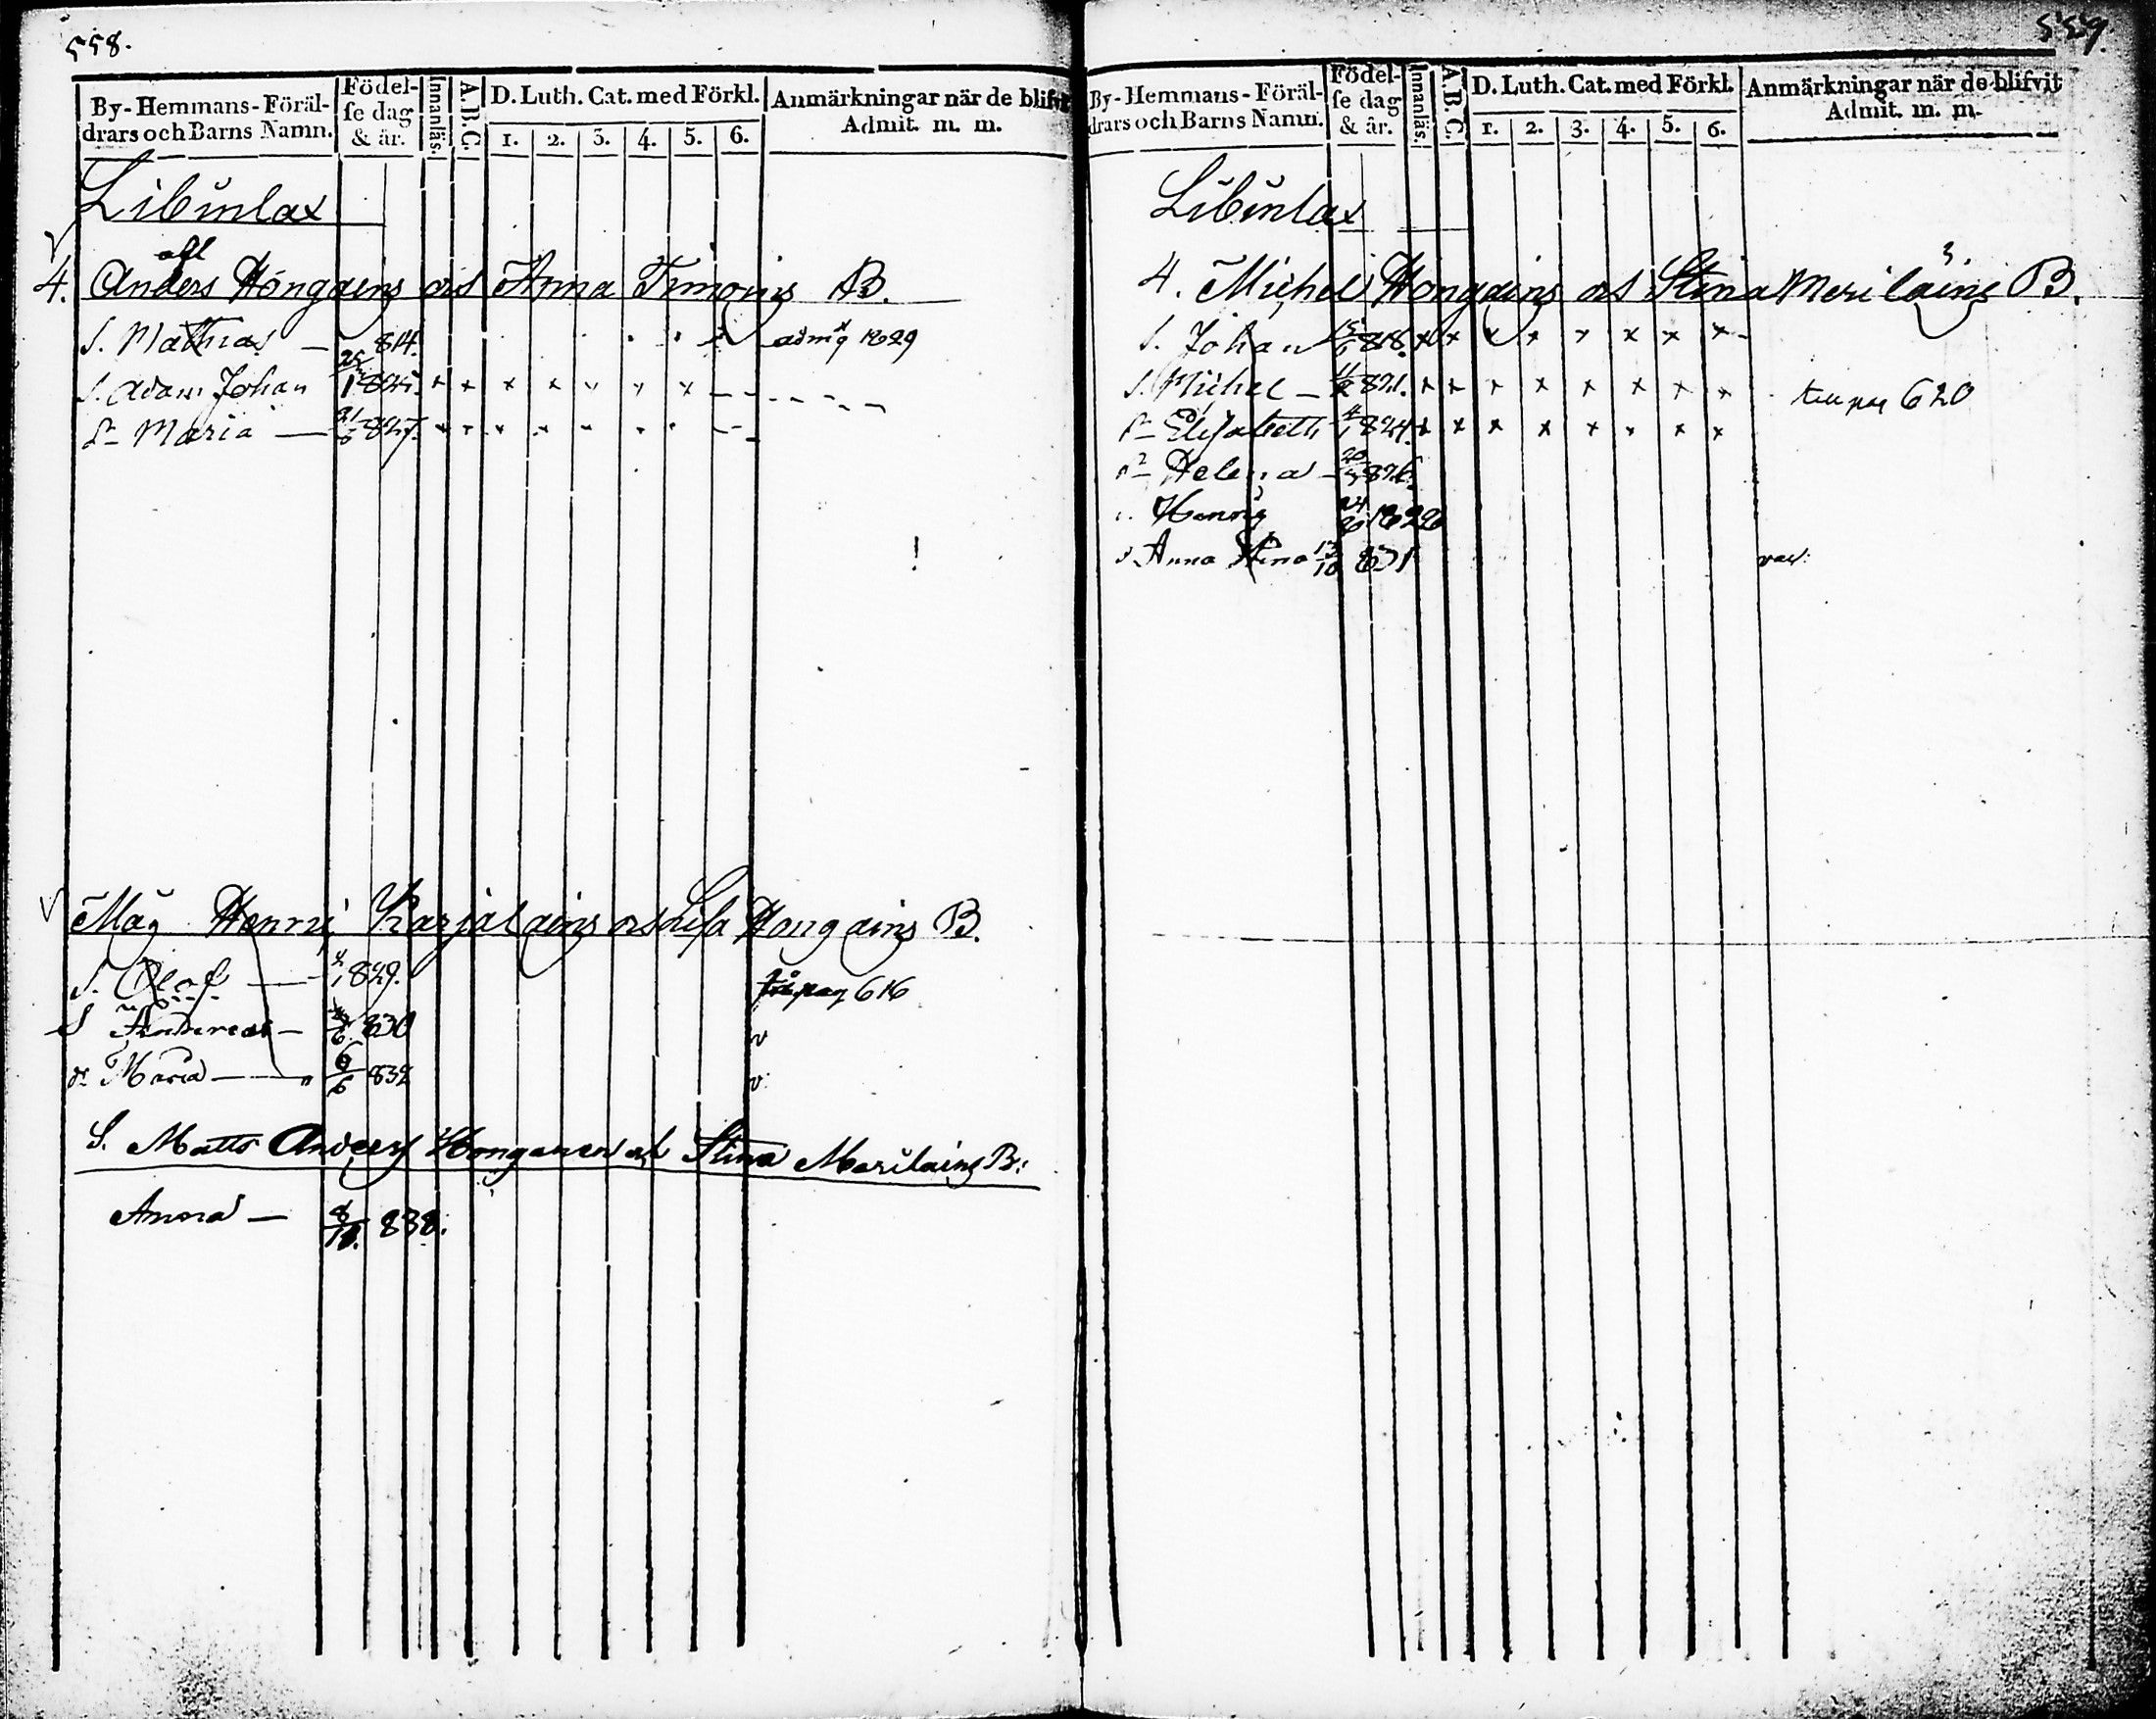 558.
By-Hemmans-Föräl-
drars och Barns Namn.
Födel-
se dag
& år.
Innanläs.
A.B.C.
D. Luth. Cat. med Förkl.
1. 2. 3. 4. 5. 6.
Anmärkningar när de blifvit
Admit. m. m.
Libūnlax
afl
4. Anders Hongains och Anna Timoins B.
S. Mathias — 814. admig 1829
S. Adam Johan 25/1 x x x x x x x
Dr Maria — 21/3 827.
Måg Henric Karjalains och Lisa Hongains B.
S. Olof — 829. på pag 616
S Andereas — 830 v
dr Maria — 6/6 832 v
S. Matts Anders Honganen och Stina Merilains B:
Anna — 8/10. 838.
559.
By-Hemmans-Föräl-
drars och Barns Namn.
Födel-
se dag
& år.
Innanläs.
A.B.C.
D. Luth. Cat. med Förkl.
1. 2. 3. 4. 5. 6.
Anmärkningar när de blifvit
Admit. m. m.
Libūnlax
4. Michel Hongains och Stina Merilains B.
S. Johan 15/1 818. x x x x x x x x
S. Michel — 11/2 821. x x x x x x x x till pag 620
Dr Elisabeth 4/1 824. x x x x x x x x
Dr Helena — 20/3 826.
Henric
d. Anna Stina 13/10 831 vac: